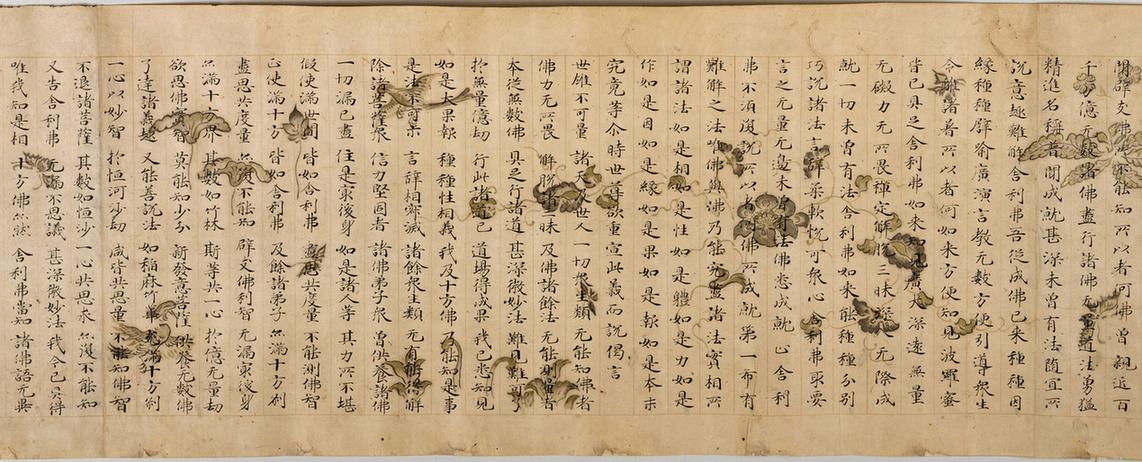 聞辟支佛所不能知所以者何佛曾親近百
千万億无數諸佛盡行諸佛无量道法勇猛
精進名稱普聞成就甚深未曾有法随宜所
說意趣難解舍利弗吾從成佛已來種種因
緣種種譬喻廣演言教无數方便引導衆生
令離諸著所以者何如來方便知見波羅蜜
皆已具足舍利弗如來知見廣大深遠無量
无礙力无所畏禪定解脫三昧深入无際成
就一切未曾有法舍利弗如來能種種分別
巧說諸法言辭柔軟悅可衆心舍利弗取要
言之无量无邊未曾有法佛悉成就止舍利
弗不須復說所以者何佛所成就第一希有
難解之法唯佛與佛乃能究盡諸法實相所
謂諸法如是相如是性如是體如是力如是
作如是因如是緣如是果如是報如是本末
究竟等尒時世尊欲重宣此義而說偈言
世雄不可量 諸天及世人 一切衆生類 无能知佛者
佛力无所畏 解脫諸三昧 及佛諸餘法 无能測量者
本從無數佛 具足行諸道 甚深微妙法 難見難可了
於無量億劫 行此諸道已 道場得成果 我已悉知見
如是大果報 種種性相義 我及十方佛 乃能知是事
是法不可示 言辭相寂滅 諸餘衆生類 无有能得解
除諸菩薩衆 信力堅固者 諸佛弟子衆 曾供養諸佛
一切漏已盡 住是冣後身 如是諸人等 其力所不堪
假使滿世間 皆如舍利弗 盡思共度量 不能測佛智
正使滿十方 皆如舍利弗 及餘諸弟子 亦滿十方刹
盡思共度量 亦復不能知 辟支佛利智 无漏冣後身
亦滿十方界 其數如竹林 斯等共一心 於億无量劫
欲思佛實智 莫能知少分 新發意菩薩 供養无數佛
了達諸義趣 又能善說法 如稻麻竹葦 充滿十方刹
一心以妙智 於恒河沙劫 咸皆共思量 不能知佛智
不退諸菩薩 其數如恒沙 一心共思求 亦復不能知
又告舍利弗 无漏不思議 甚深微妙法 我今已具得
唯我知是相 十方佛亦然 舍利弗當知 諸佛語无異